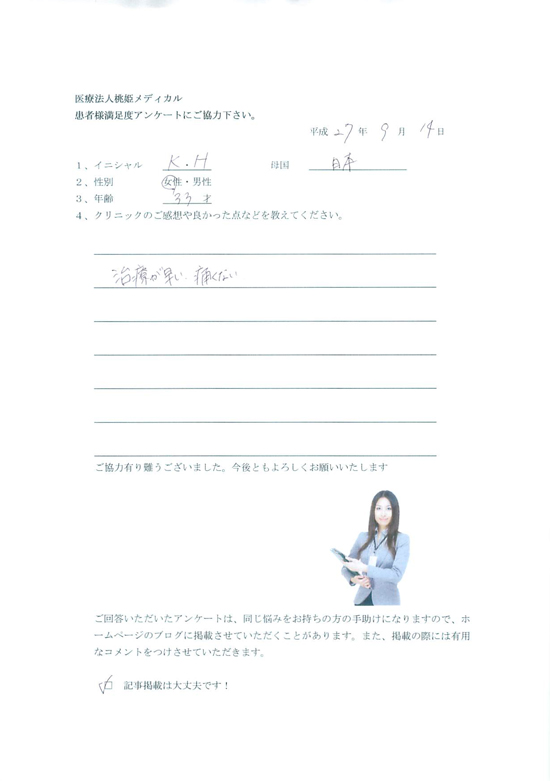 医療法人桃姫メディカル
患者様満足度アンケートにご協力下さい。
平成 27 年 9 月 14 日
1、イニシャル K.H 母国 日本
2、性別 女性・男性
3、年齢 33 才
4、クリニックのご感想や良かった点などを教えてください。
治療が早い、痛くない
ご協力有り難うございました。今後ともよろしくお願いいたします
ご回答いただいたアンケートは、同じ悩みをお持ちの方の手助けになりますので、ホ
ームページのブログに掲載させていただくことがあります。また、掲載の際には有用
なコメントをつけさせていただきます。
☑ 記事掲載は大丈夫です！